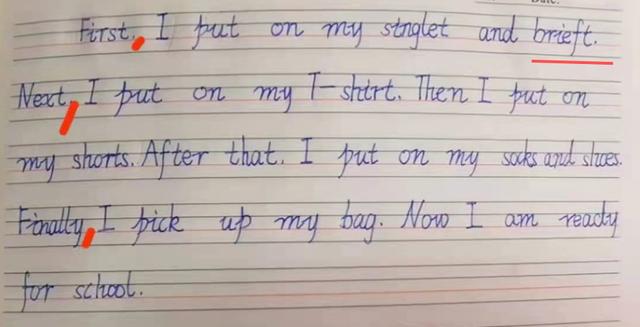 First, I put on my singlet and brieft.
Next, I put on my T-shirt. Then I put on
my shorts. After that. I put on my socks and shoes.
Finally, I pick up my bag. Now I am ready
for school.